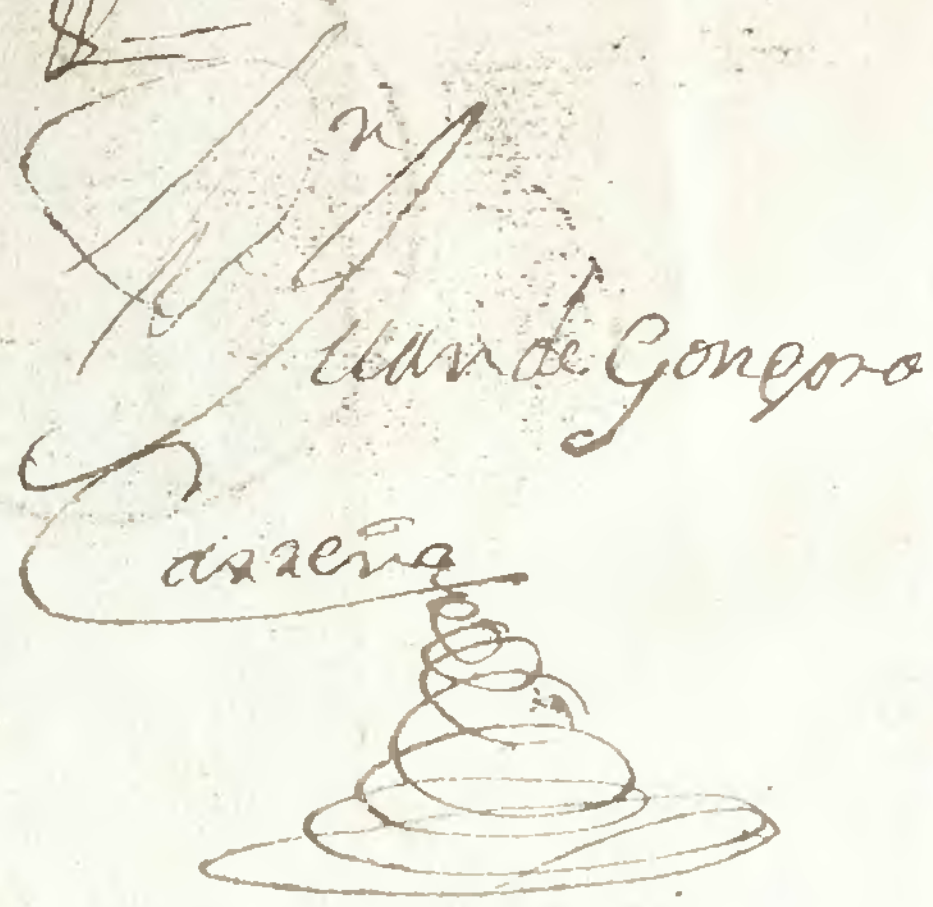 Dn Juan de Gongora
Carreño